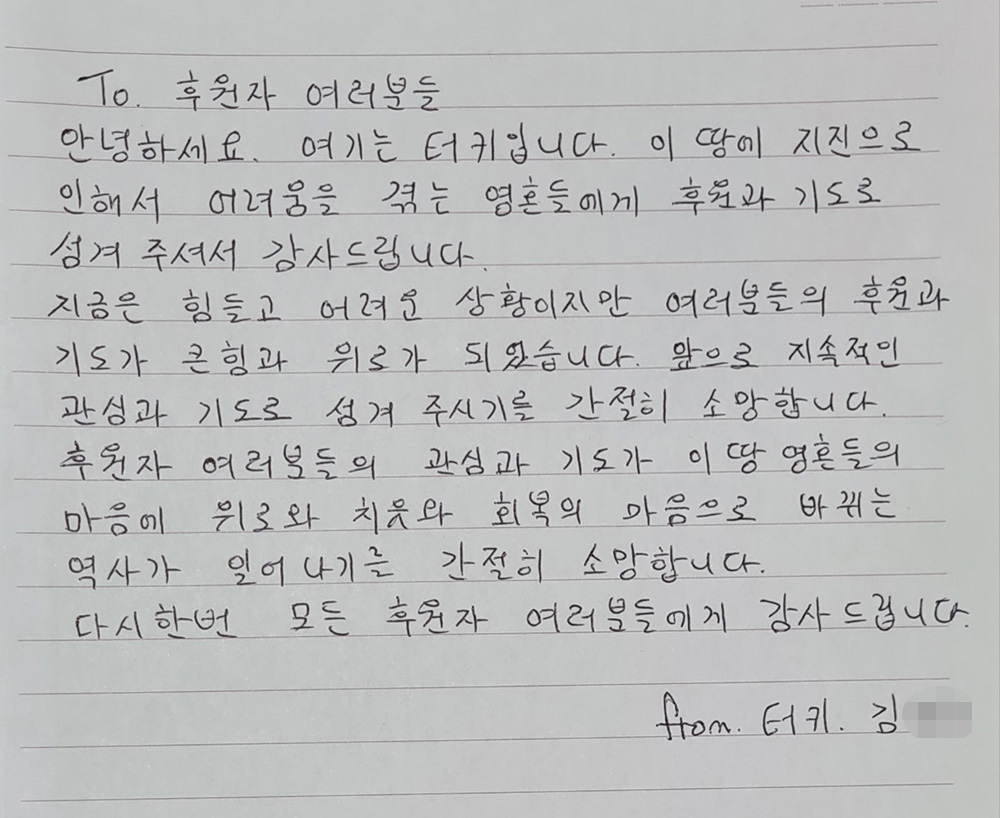 To. 후원자 여러분들
안녕하세요. 여기는 터키입니다. 이 땅에 지진으로
인해서 어려움을 겪는 영혼들에게 후원과 기도로
섬겨 주셔서 감사드립니다.
지금은 힘들고 어려운 상황이지만 여러분들의 후원과
기도가 큰힘과 위로가 되었습니다. 앞으로 지속적인
관심과 기도로 섬겨 주시기를 간절히 소망합니다.
후원자 여러분들의 관심과 기도가 이 땅 영혼들의
마음에 위로와 치유와 회복의 마음으로 바뀌는
역사가 일어나기를 간절히 소망합니다.
다시한번 모든 후원자 여러분들에게 감사드립니다.
from. 터키. 김